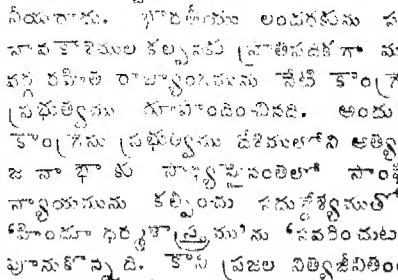 నీయరాదు. భారతీయు లందరకును స
నావకాశముల కల్పనకు ప్రాతిపదికగా
వర్గ రహిత రాజ్యాంగమును నేటి కాంగ్రె
ప్రభుత్వము రూపొందించినది. అందు
కాంగ్రెసు ప్రభుత్వము దేశములోని అత్యి
జనాభాకు సాధ్యమైనంతలో సాంఘ
న్యాయమును కల్పించు సదుద్దేశ్యముతో
'హిందూ ధర్మశాస్త్రము'ను 'సవరించుట
పూనుకొన్నది. కాని ప్రజల నిత్యజీవితం